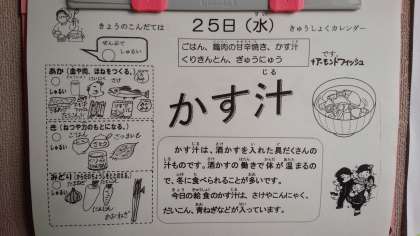 きょうのこんだては
25日(水)
きゅうしょくカレンダー
ぜんぶで
しゅるい
ごはん、鶏肉の甘辛焼き、かす汁
くりきんとん、ぎゅうにゅう
です。
アーモンドフィッシュ
あか(血や肉、ほねをつくる。)
しゅるい
さけ
かす汁
じる
き(ねつや力のもとになる。)
しゅるい
みどり(からだのちょうしをととのえる。)
しゅるい
かす汁は、酒かすを入れた具だくさんの
汁ものです。酒かすの働きで体が温まるの
で、冬に食べられることが多いです。
今日の給食のかす汁は、さけやこんにゃく、
だいこん、青ねぎなどが入っています。